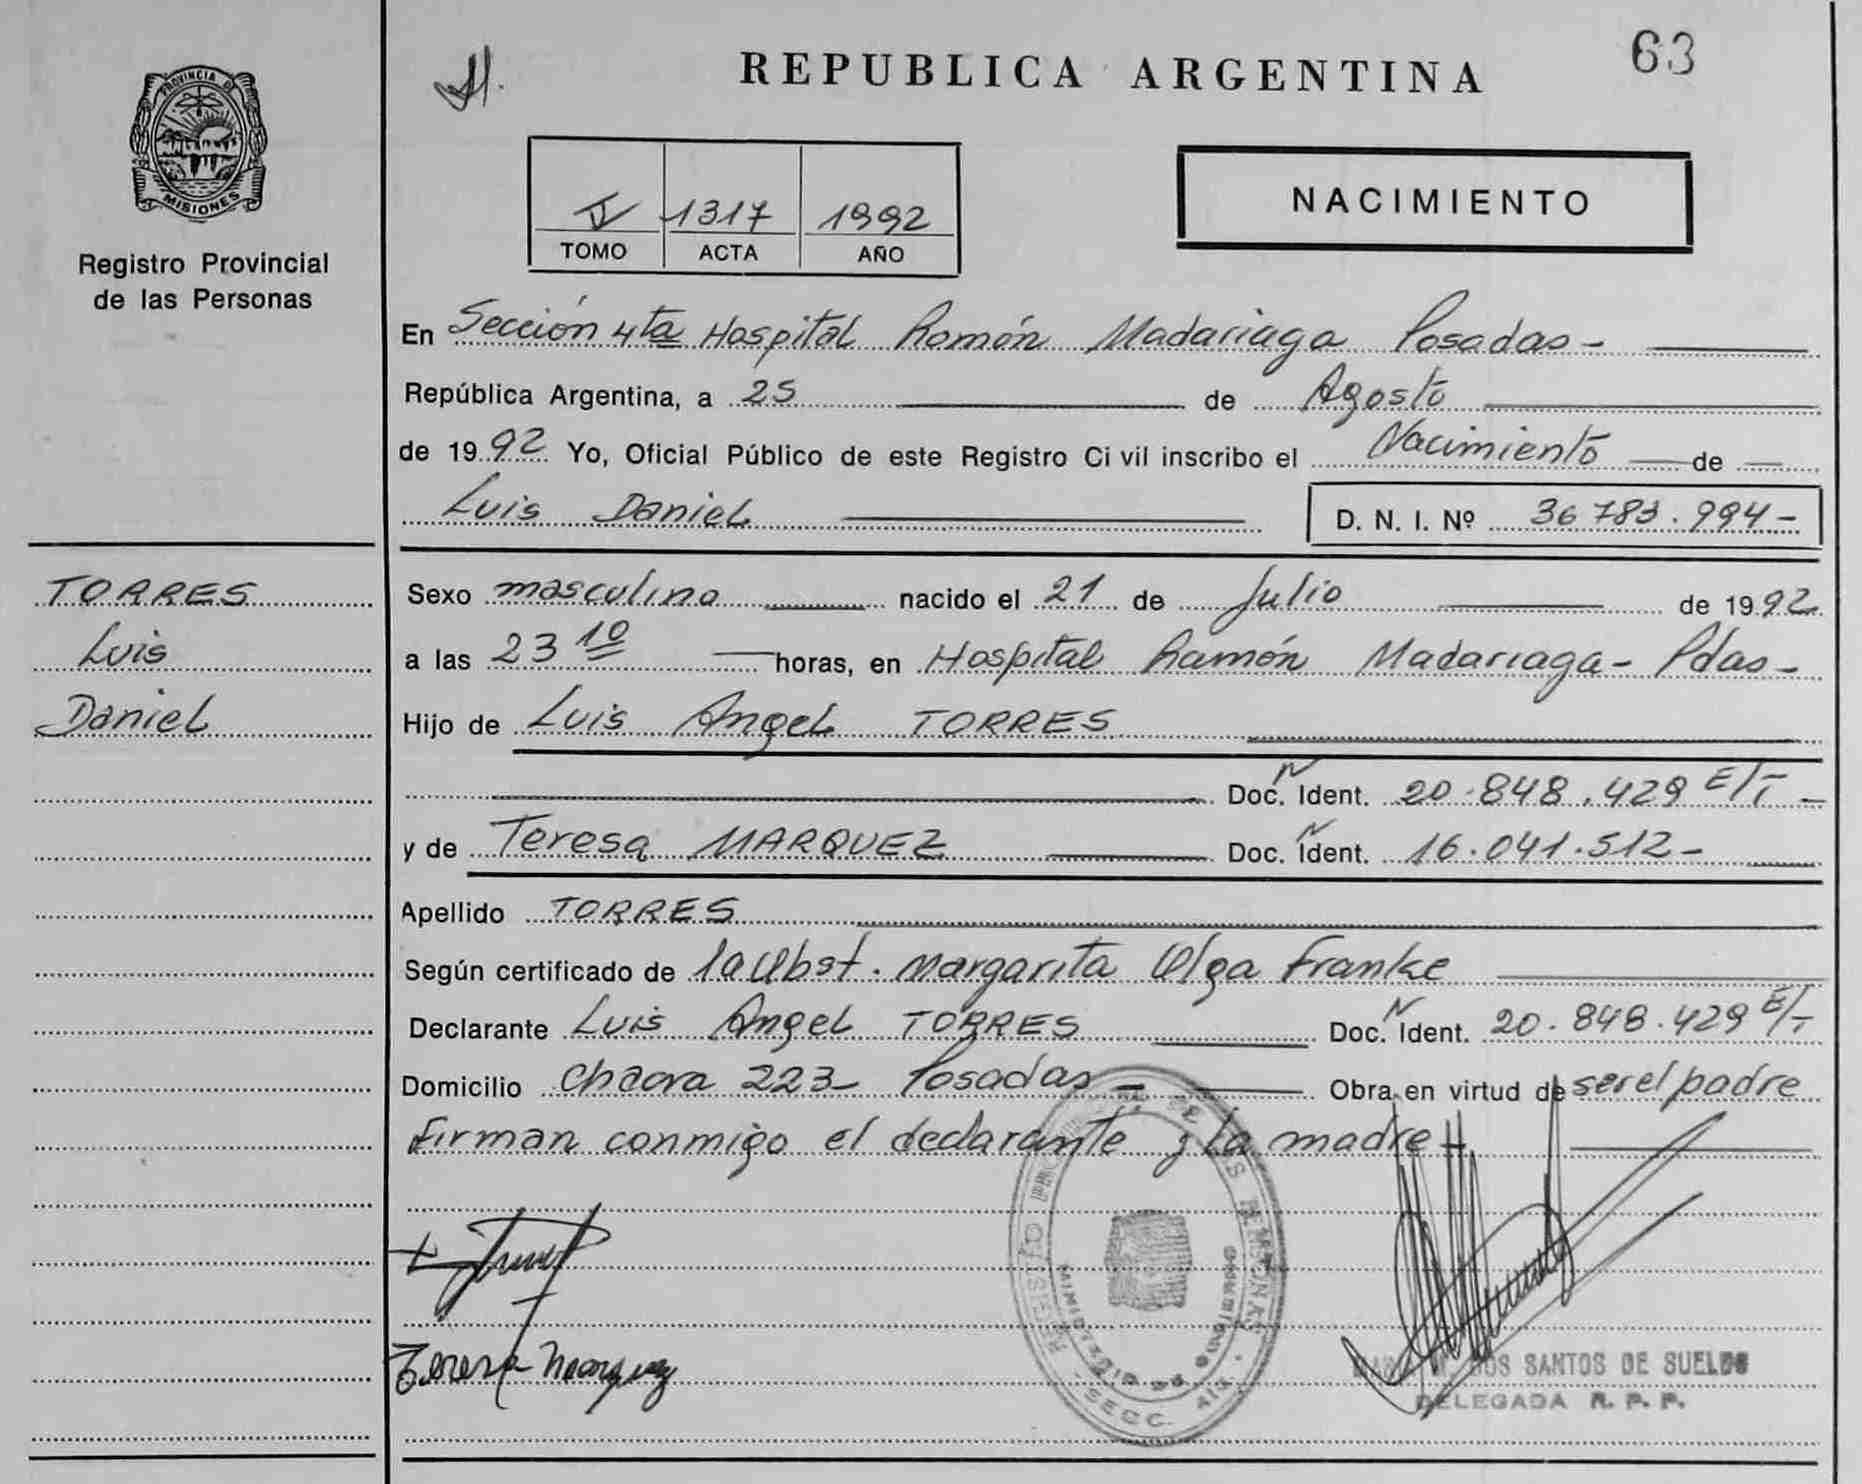 63
REPUBLICA ARGENTINA
PROVINCIA DE
MISIONES
Registro Provincial
de las Personas
1317 1992
TOMO ACTA AÑO
NACIMIENTO
En Sección 4ta Hospital Ramón Madariaga Posadas -
República Argentina, a 25 de Agosto
de 1992 Yo, Oficial Público de este Registro Civil inscribo el Nacimiento de
Luis Daniel D. N. I. Nº 36783.994-
TORRES
Luis
Daniel
Sexo masculino nacido el 21 de Julio de 1992
a las 23 10 horas, en Hospital Ramón Madariaga - Pdas -
Hijo de Luis Angel TORRES
Doc. Ident. 20.848.429 E/T -
y de Teresa MARQUEZ Doc. Ident. 16.041.512 -
Apellido TORRES
Según certificado de la Obst. Margarita Olga Franke
Declarante Luis Angel TORRES Doc. Ident. 20.848.429 E/T
Domicilio Chacra 223 - Posadas - Obra en virtud de ser el padre
Firman conmigo el declarante y la madre -
Teresa Marquez
DOS SANTOS DE SUELDO
DELEGADA R. P. P.